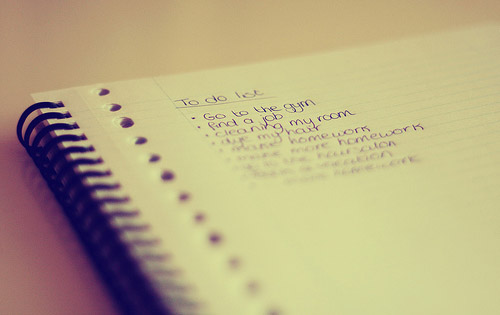 To do list
• Go to the gym
• find a job
• cleaning my room
• dye my hair
• make homework
• make more homework
• go to the hair salon